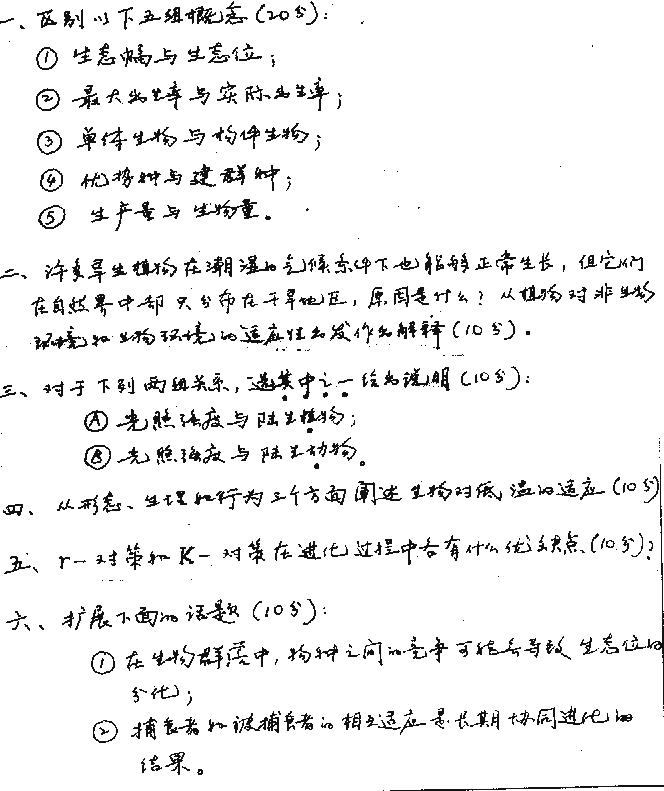 一、区别以下五组概念(20分):
① 生态幅与生态位;
② 最大出生率与实际出生率;
③ 单体生物与构件生物;
④ 优势种与建群种;
⑤ 生产量与生物量。
二、许多旱生植物在潮湿的气候条件下也能够正常生长,但它们
在自然界中却只分布在干旱地区,原因是什么?从植物对非生物
环境和生物环境的适应性出发作出解释(10分)。
三、对于下列两组关系,选其中之一给出说明(10分):
Ⓐ 光照强度与陆生植物;
Ⓑ 光照强度与陆生动物。
四、从形态、生理和行为三个方面阐述生物对低温的适应(10分)
五、r-对策和K-对策在进化过程中各有什么优缺点(10分)?
六、扩展下面的话题(10分):
① 在生物群落中,物种之间的竞争可能会导致生态位的
分化;
② 捕食者和被捕食者的相互适应是长期协同进化的
结果。